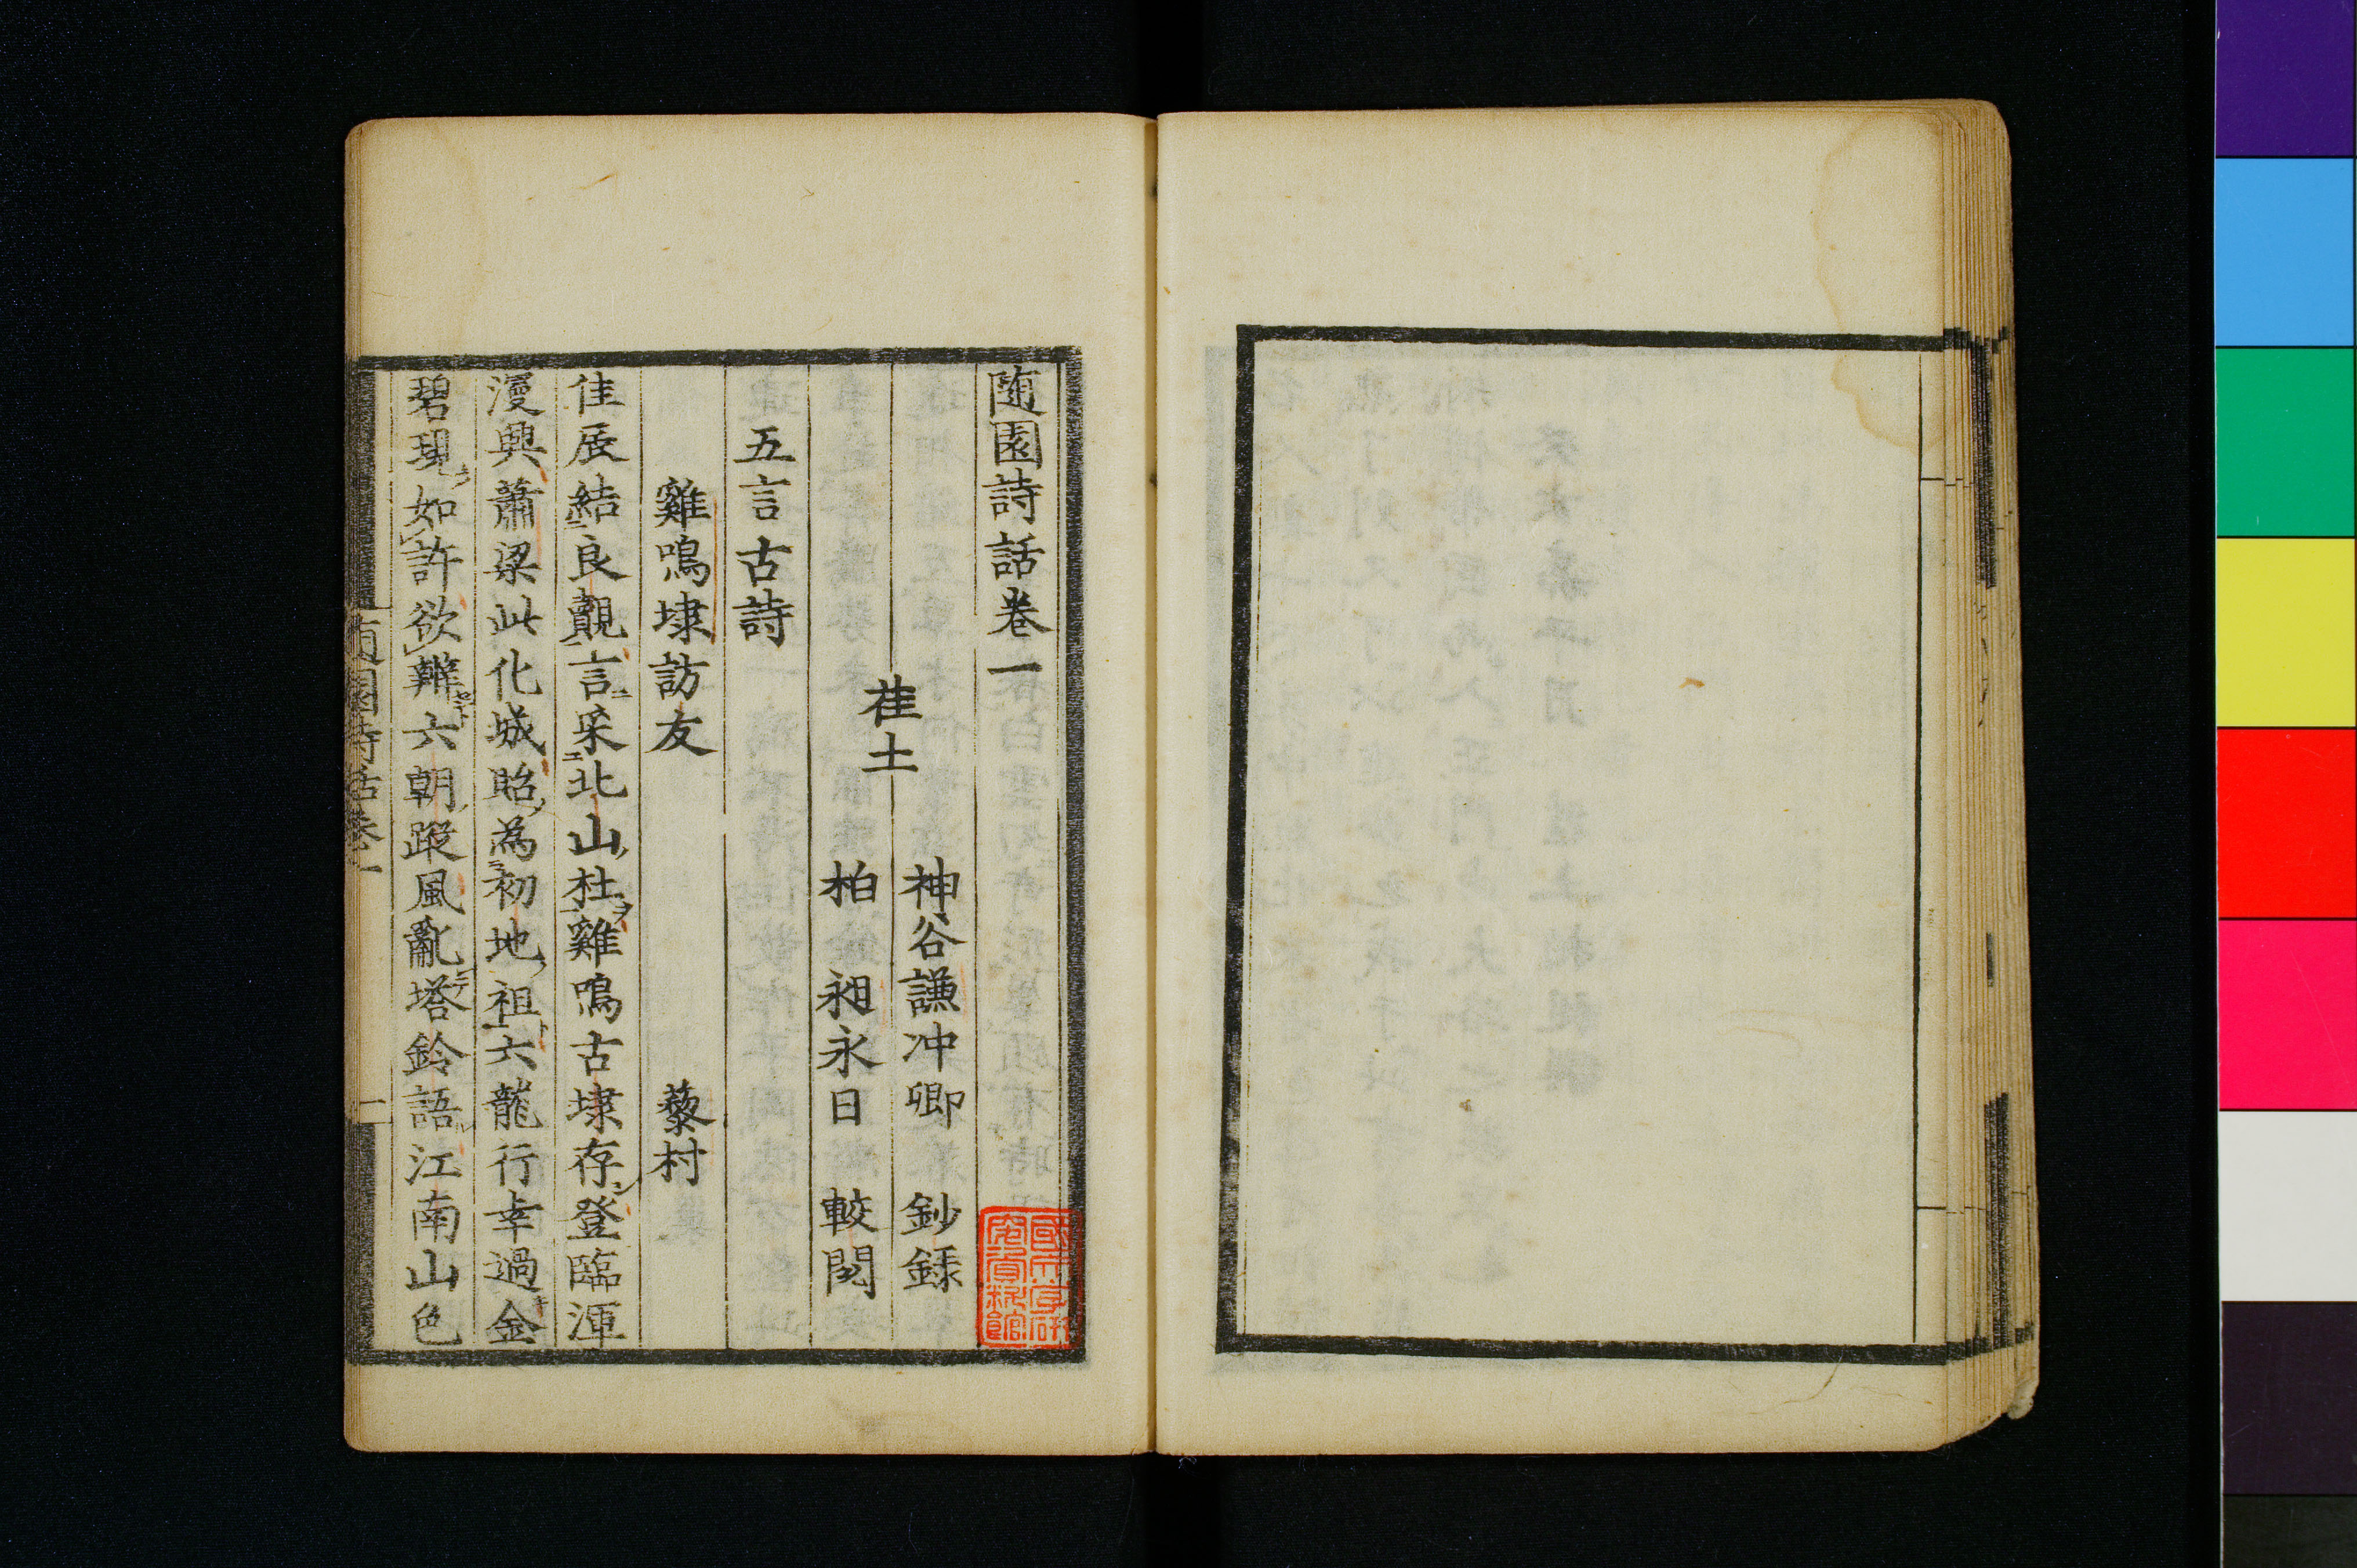 随園詩話巻一
荏土
神谷謙冲卿 鈔録
柏 昶永日 較閲
五言古詩
雞鳴埭訪友 藜村
佳辰結良覿言采北山杜雞鳴古埭存登臨渾
漫興蕭梁此化城貽為初地祖六龍行幸過金
碧現如許欲辨六朝蹤風亂塔鈴語江南山色
随園詩話巻一
一